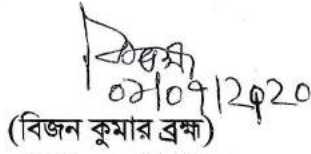 ০৮/০৭/২০২০
(বিজন কুমার ব্রহ্ম)